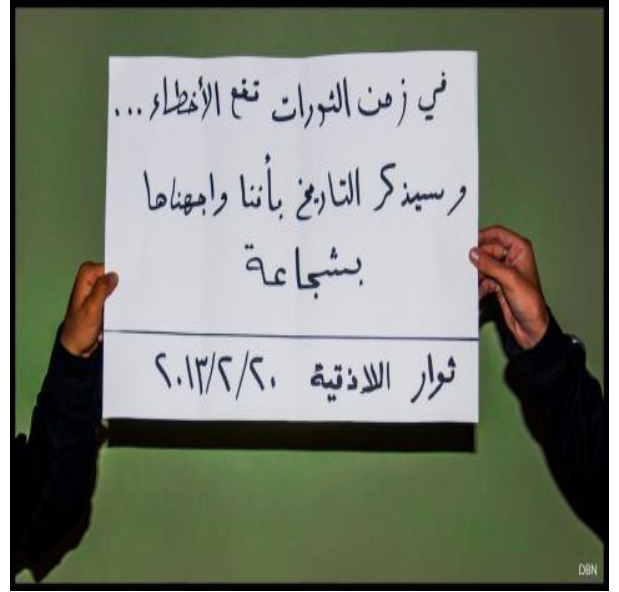 في زمن الثورات تقع الأخطاء...
و سيذكر التاريخ بأننا واجهناها
بشجاعة
ثوار اللاذقية ٢٠١٣/٢/٢٠
DBN